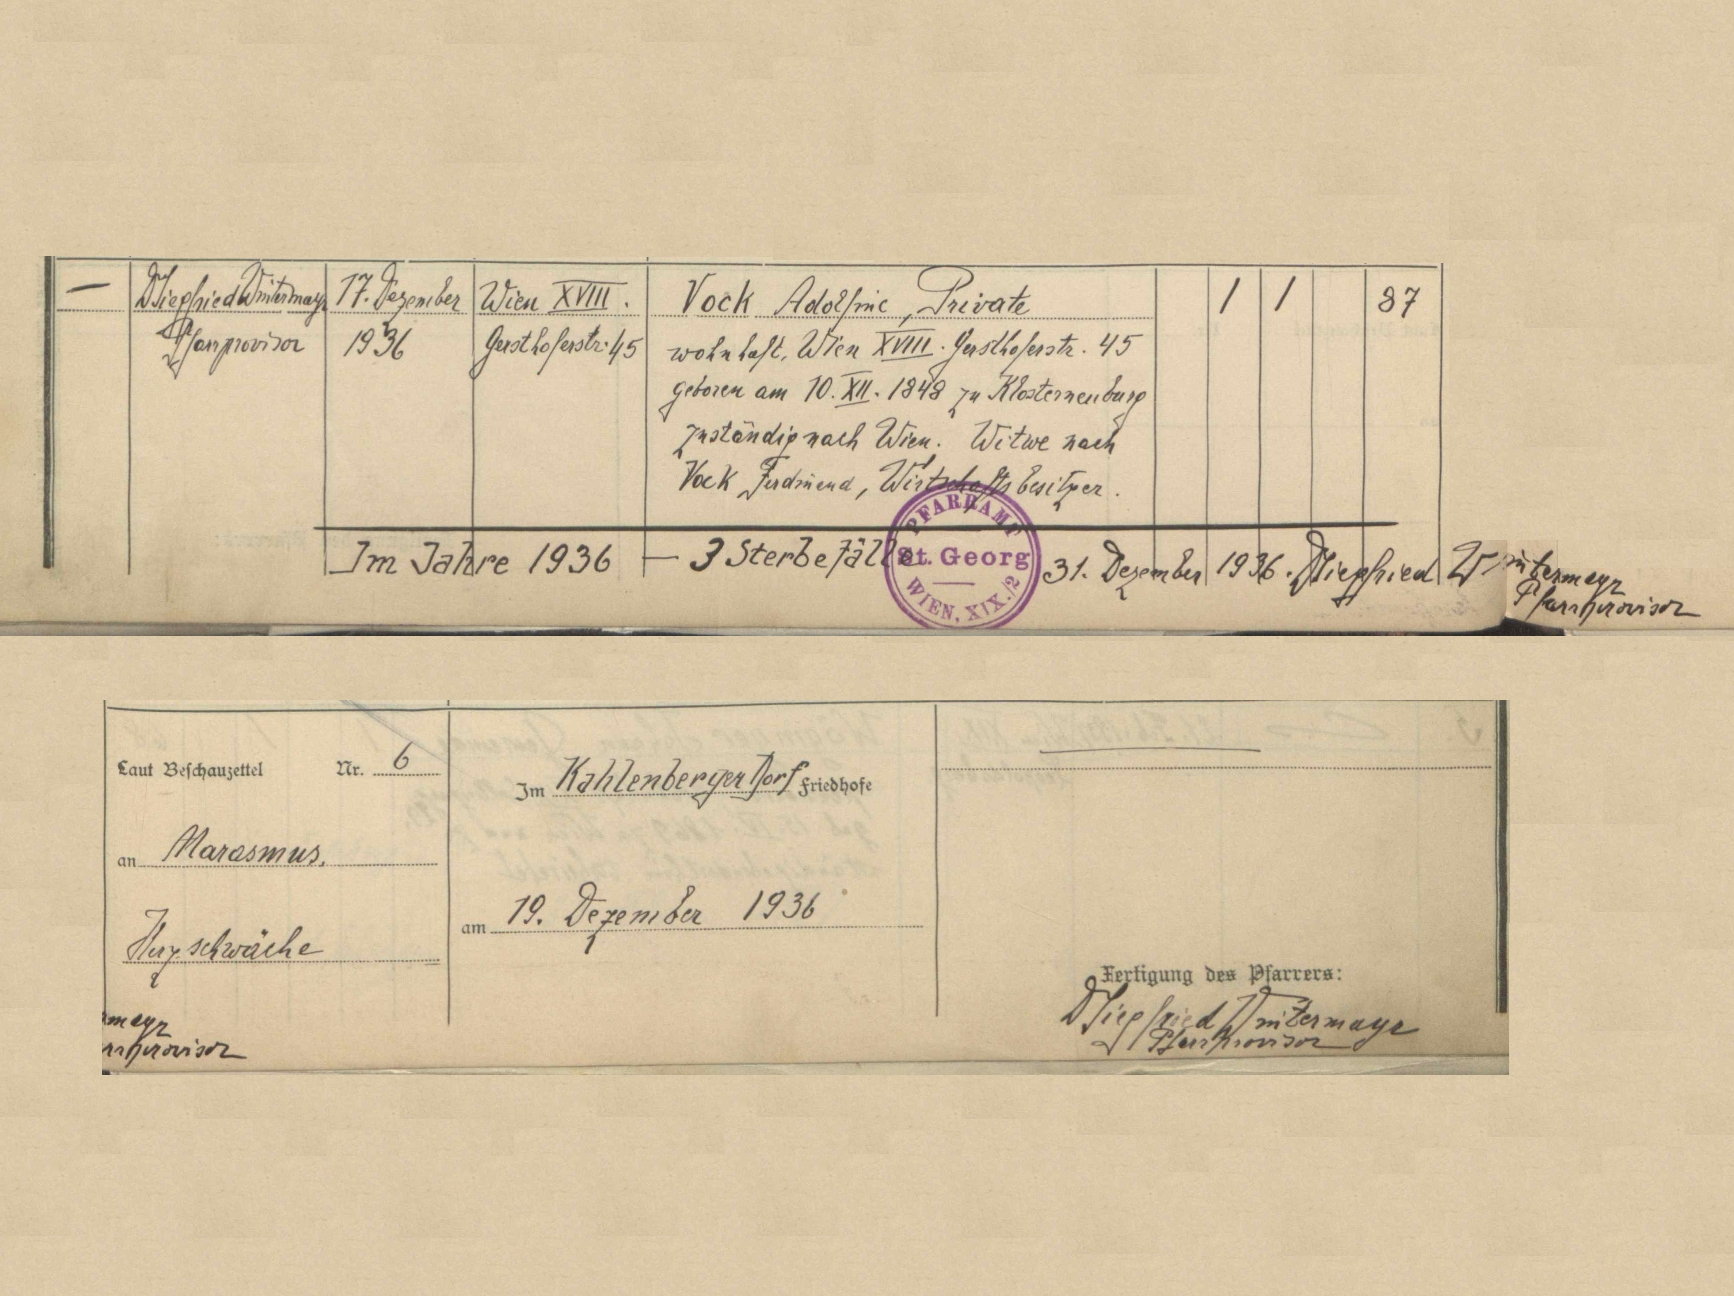 — D Siegfried Wintermayr 17. Dezember Wien XVIII. Vock Adolfine, Private 1 1 87
Pfarrprovisor 1936 Gersthoferstr. 45 wohnhaft, Wien XVIII. Gersthoferstr. 45
geboren am 10. XII. 1848 zu Klosterneuburg
zuständig nach Wien. Witwe nach
Vock Ferdinand, Wirtschaftsbesitzer.
PFARRAMT
St. Georg
WIEN, XIX./2
Im Jahre 1936 — 3 Sterbefälle 31. Dezember 1936. D Siegfried Wintermayr
Pfarrprovisor
Laut Beschauzettel Nr. 6
an Marasmus,
Herzschwäche
mayr
rrprovisor
Im Kahlenbergerdorf Friedhofe
am 19. Dezember 1936
Fertigung des Pfarrers:
D Siegfried Wintermayr
Pfarrprovisor